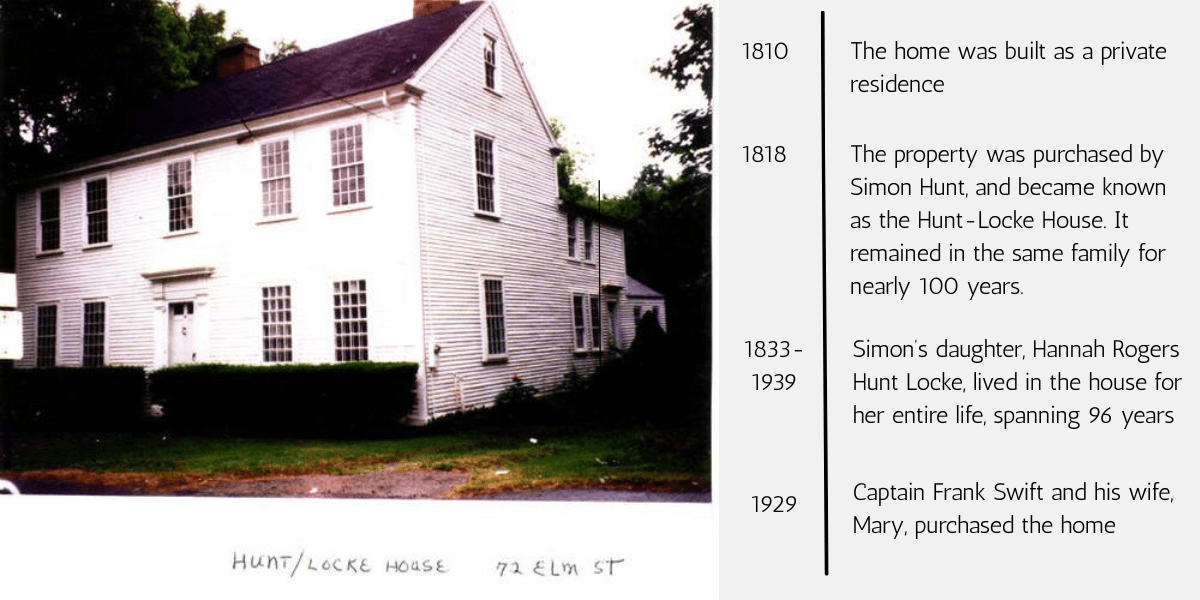 1810
The home was built as a private
residence
1818
The property was purchased by
Simon Hunt, and became known
as the Hunt-Locke House. It
remained in the same family for
nearly 100 years.
1833-
1939
Simon's daughter, Hannah Rogers
Hunt Locke, lived in the house for
her entire life, spanning 96 years
1929
Captain Frank Swift and his wife,
Mary, purchased the home
HUNT/LOCKE HOUSE 72 ELM ST